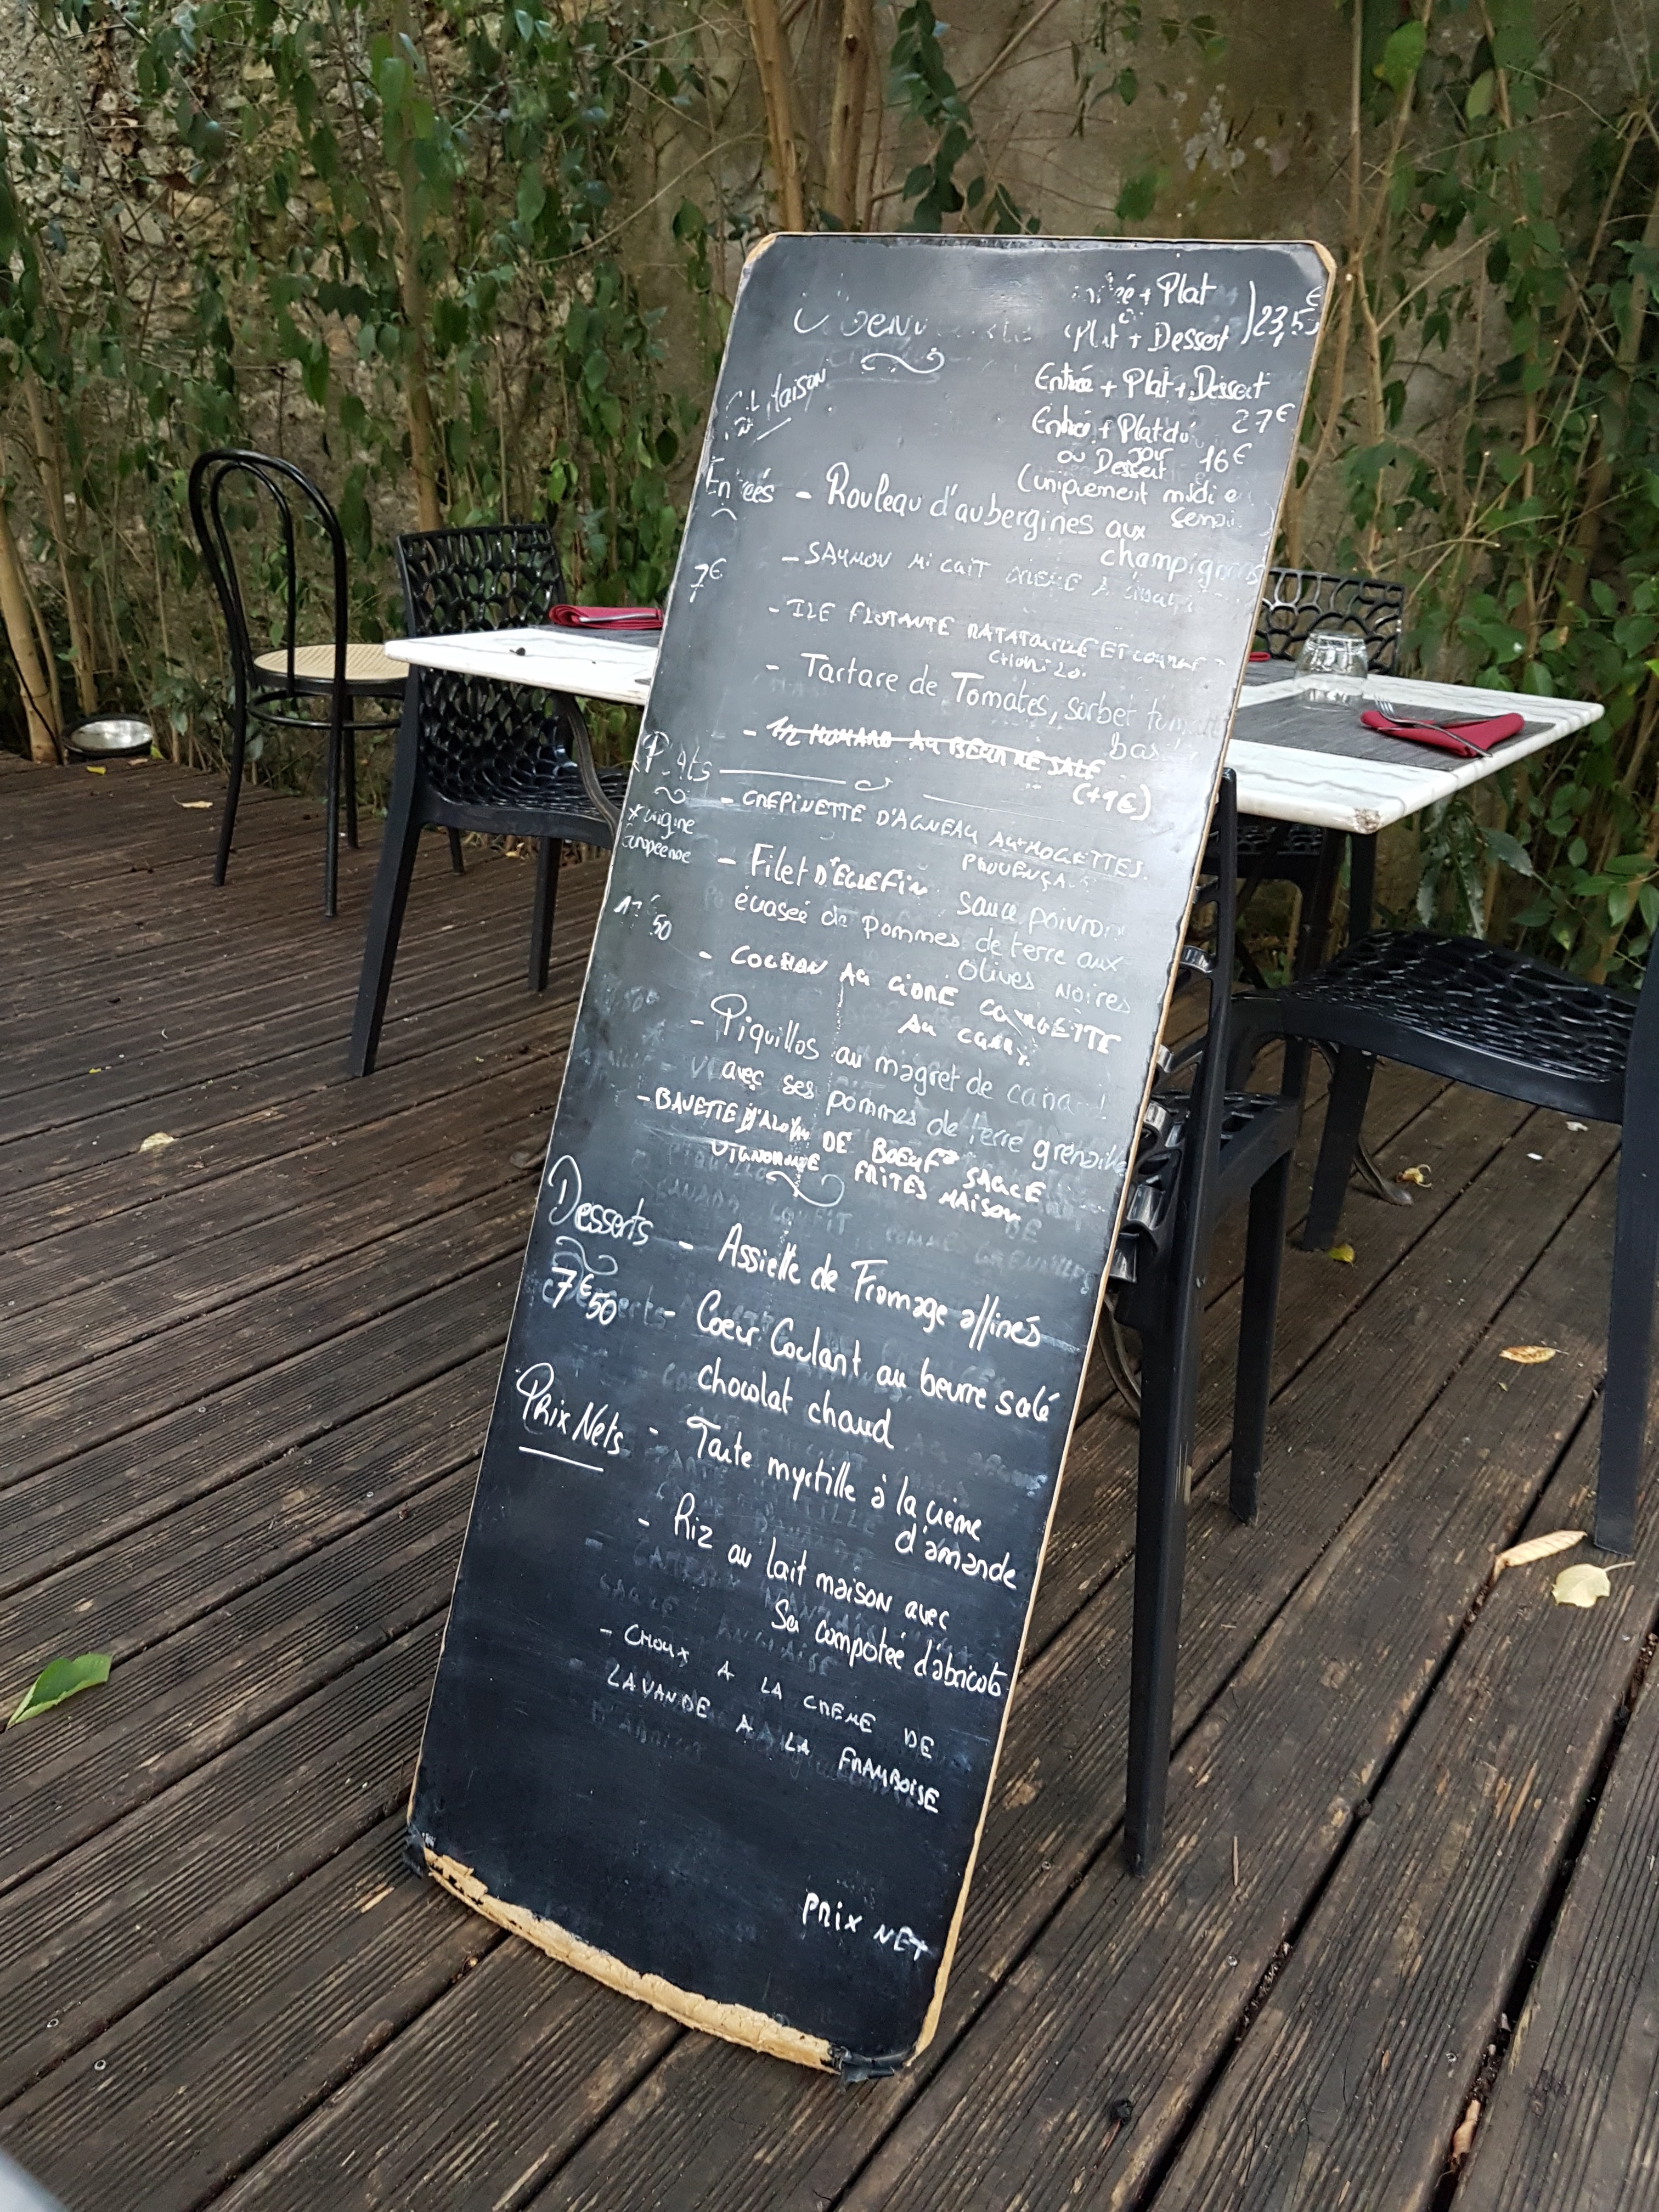 + Plat
Plat + Dessert 23,5 €
Entrée + Plat + Dessert
27€
Maison
Entrée + Plat du
jour 16€
ou Dessert
(uniquement midi
Entrées - Rouleau d'aubergines aux
champignons
7€
- SAUMON MI CUIT CREME A
- ILE FLOTANTE RATATOUILLE ET
CHORIZO.
- Tartare de Tomates, sorbet
- 1/2 HOMARD AU BEURRE SALE
(+9€)
Plats
- CREPINETTE D'AGNEAU AU MOGETTES
* origine
européenne
- Filet D'EGLEFIN sauce poivron
évasée de pommes de terre aux
Olives Noires
50
- COCHON AU CIDRE COURGETTE
AU CURRY
- Piquillos au magret de canard
avec ses pommes de terre grenaille
- BAVETTE D'ALOYAU DE BOEUF* SAUCE
VIGNERONNE FRITES MAISON
Desserts - Assiette de Fromage affinés
7€50 - Coeur Coulant au beurre salé
chocolat chaud
Prix Nets - Tarte myrtille à la crème
d'amande
- Riz au lait maison avec
Sa compotée d'abricots
- CHOUX A LA CREME DE
LAVANDE A LA FRAMBOISE
PRIX NET